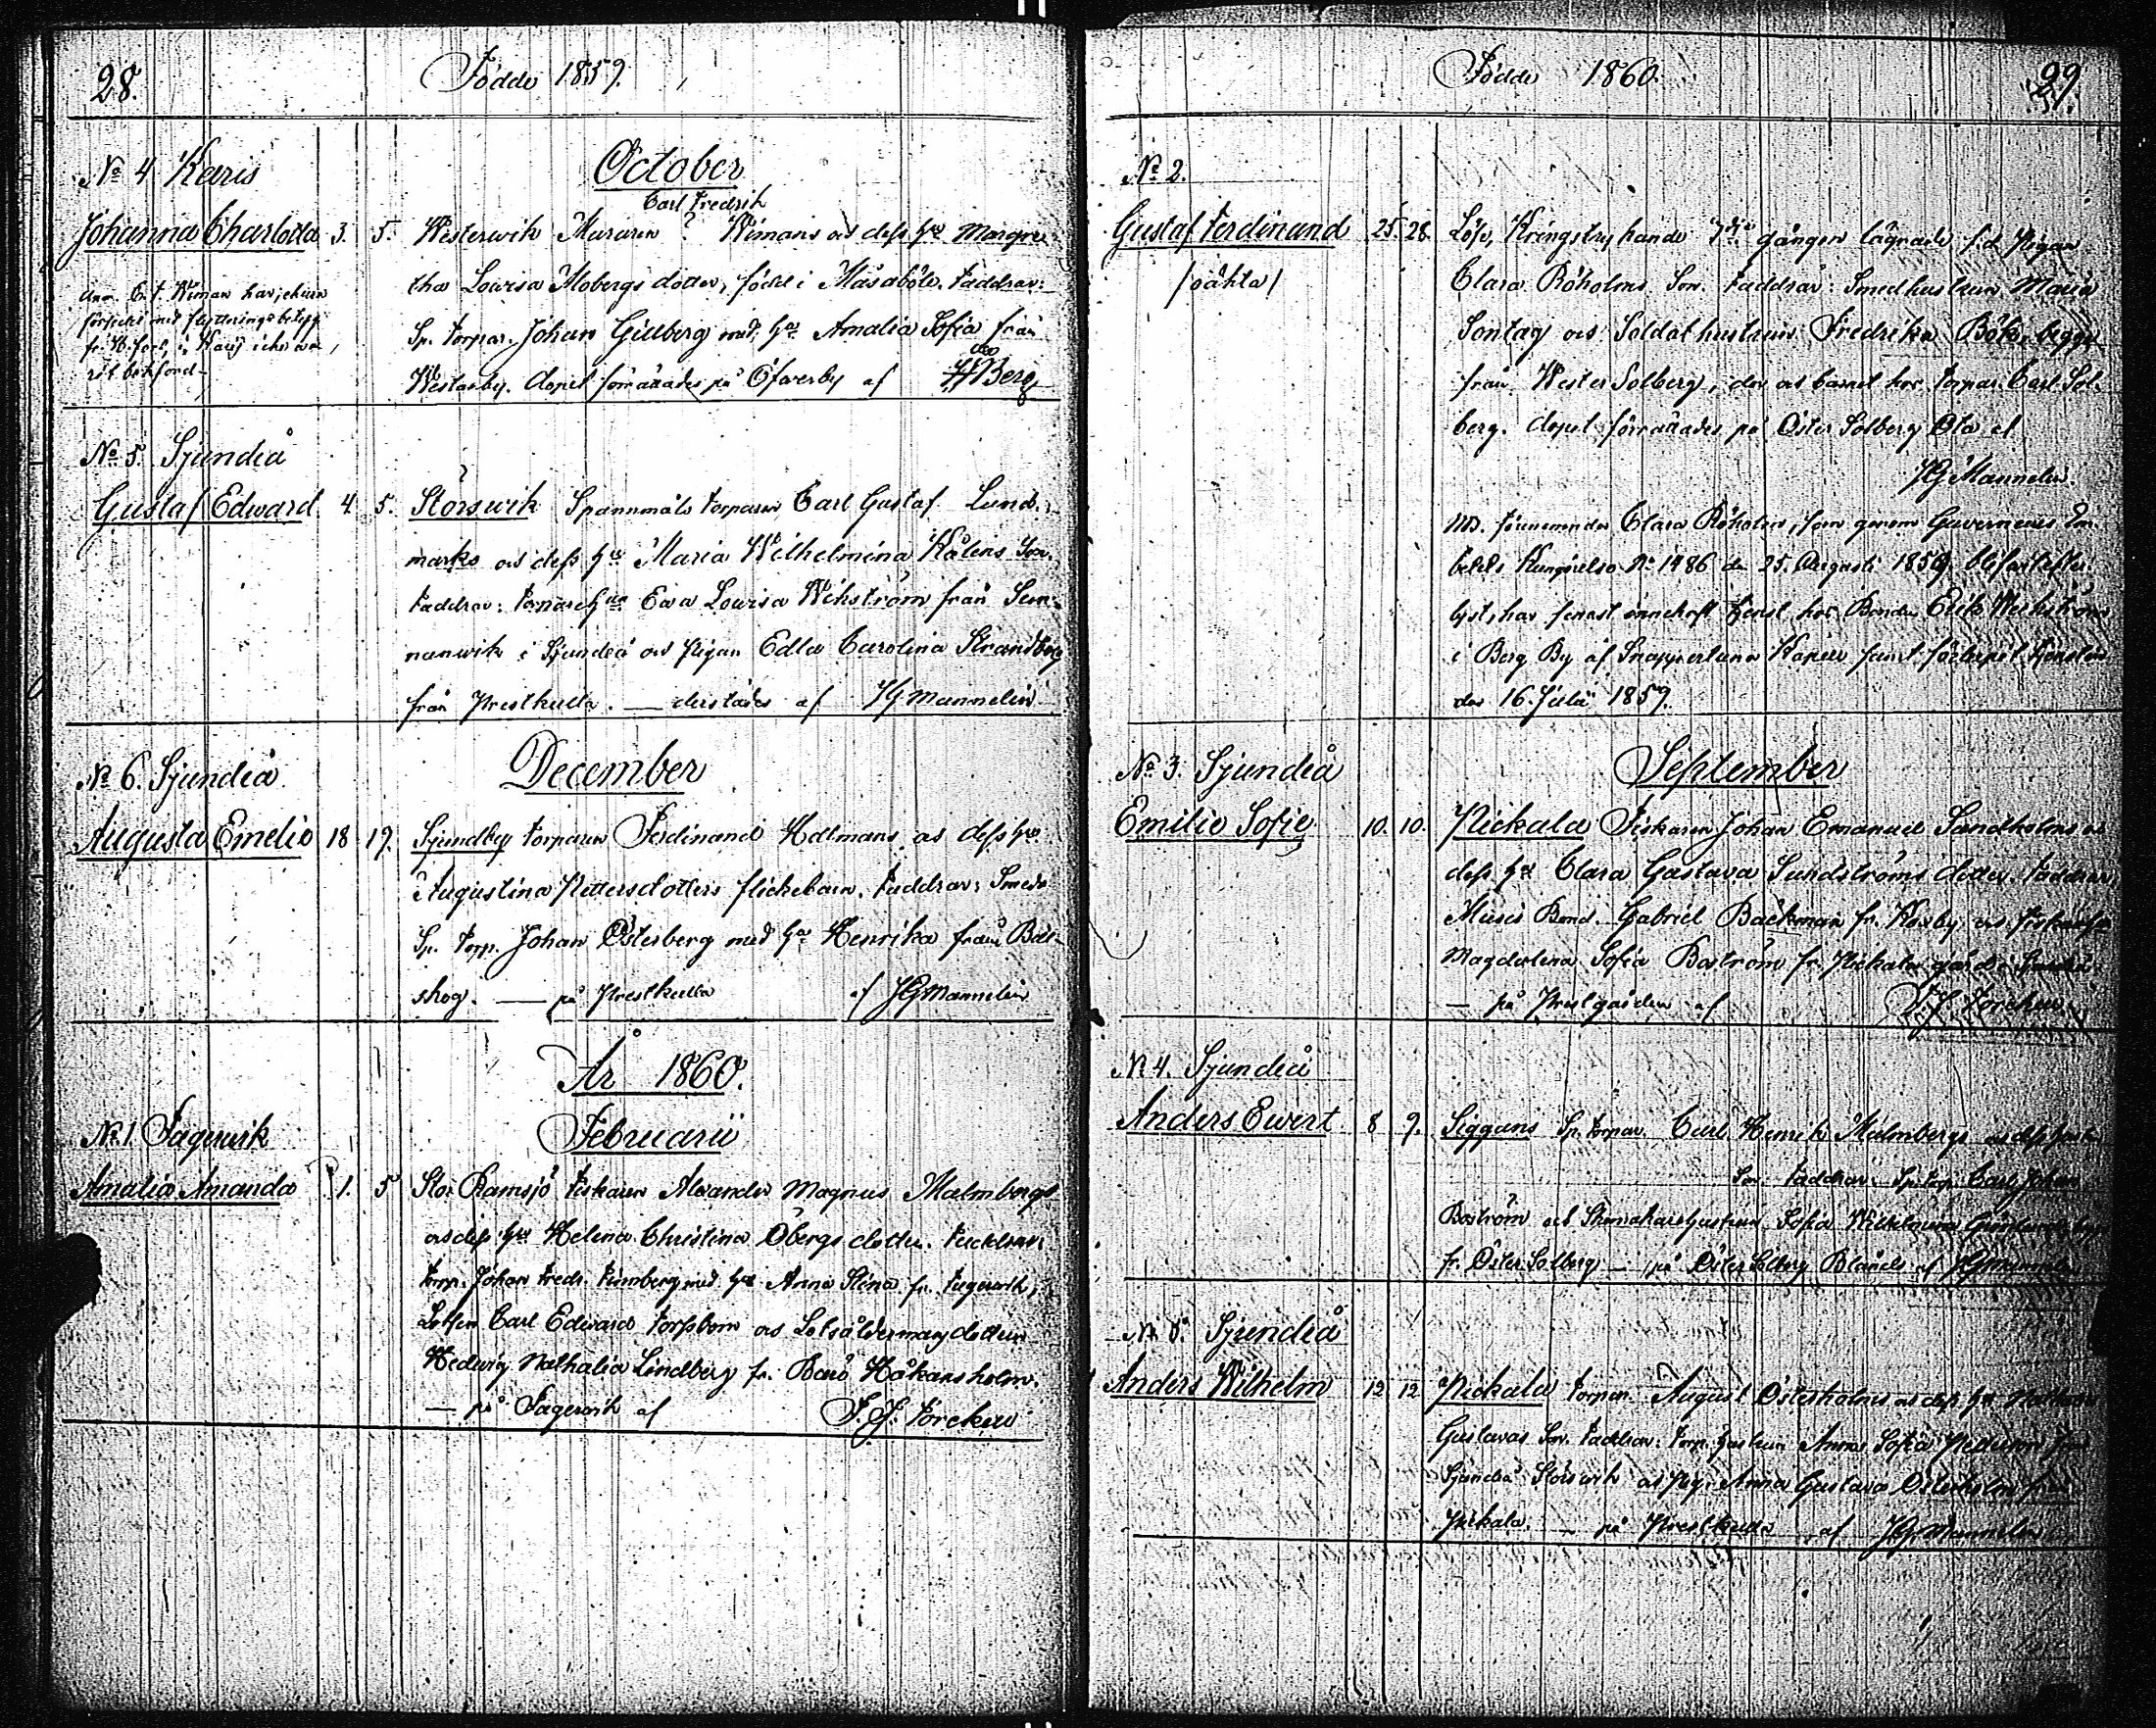 28.
Födde 1859.
No 4 Karis
October
Carl Fredrik
Johanna Charlotta 3. 5. Westerwik Muraren ? Wimans och dess h:u Margre-
tha Lovisa Mobergs dotter, född i Måsaböle. Faddrar:
Sp. torpar. Johan Gillberg med h:u Amalia Sofia från
Westarby. dopet förrättades på Öfverby af Berg
Anm. C. F. Wiman har
med flyttningsbetyg
No 5. Sjundeå
Gustaf Edward 4 5. Störswik Spannmåls torparen Carl Gustaf Lund-
marks och dess h:u Maria Wilhelmina Kålens Son.
Faddrar: torpareh:un Eva Lovisa Wikström från Sun-
nanwik i Sjundeå och Pigan Edla Carolina Strandberg
från Prestkulla. — derstädes af JGMannelin
No 6. Sjundeå
December
Augusta Emelie 18 19. Sjundby torparen Ferdinand Holmans och dess h:u
Augustina Pettersdotters flickebarn. Faddrar: Smeds
Sp. torp. Johan Österberg med h:u Henrika från Båt-
skog. — på Prestkulla af JGMannelin
År 1860.
No 1. Fagerwik
Februarii
Amalia Amanda 1. 5 Stor Ramsjö Fiskaren Alexander Magnus Malmbergs
och dess h:u Helena Christina Öbergs dotter. Faddrar:
torp. Johan Fredr. Finnberg med h:u Anna Stina fr. Fagerwik,
Lotsen Carl Edward Forsbom och Lotsåldermansdottern
Hedwig Nathalia Lindberg fr. Barö Håkansholm.
— på Fagerwik af
Födde 1860.
29.
No 2.
Gustaf Ferdinand 25. 28. Löse, Kringstrykande gången lägrade f.d. Pigan
/oäkta/
Clara Röholms Son. Faddrar: Smedhustrun Maria
Sontag och Soldathustrun Fredrika Bök, begge
från Wester Solberg, der och barnet hos torpar. Carl Sol-
berg. dopet förrättades på Öster Solberg af
JGMannelin.
NB. Förenämnda Clara Röholm, som genom Guverneurs Em-
betets Kungörelse No 1486 den 25. Augusti 1859 blifvit efter-
lyst, har senast innehaft tjenst hos Bonden Erik Weckström
i Berg By af Snappertuna Kapell samt förlupit tjensten
den 16. Julii 1859.
No 3. Sjundeå
September
Emilie Sofie 10. 10. Pickala Fiskaren Johan Emanuel Sandholms och
dess h:u Clara Gustava Sundströms dotter. Faddrar:
Bond. Gabriel Bäckman fr. Kosby och
Magdalena Sofia Boström fr. Pickala gård i Sjundeå
— på Prestgården af
N 4. Sjundeå
Anders Ewert 8 9. Siggans Sp. torpar. Carl Henrik Malmbergs och dess hustrus
Son. Faddrar: Sp. torp. Carl Johan
Boström och Skomakarehustrun Sofia Wilhelmina
fr. Öster Solberg — på Öster Solberg af JGMannelin
N 5. Sjundeå
Anders Wilhelm 12 12 Pickala torpar. August Österholms och dess h:u
Gustavas Son. Faddrar: torp. hustrun Anna Sofia
Sjundeå Störswik och Pig. Anna Gustava Österholm från
Pickala. — på Prestkulla af JGMannelin